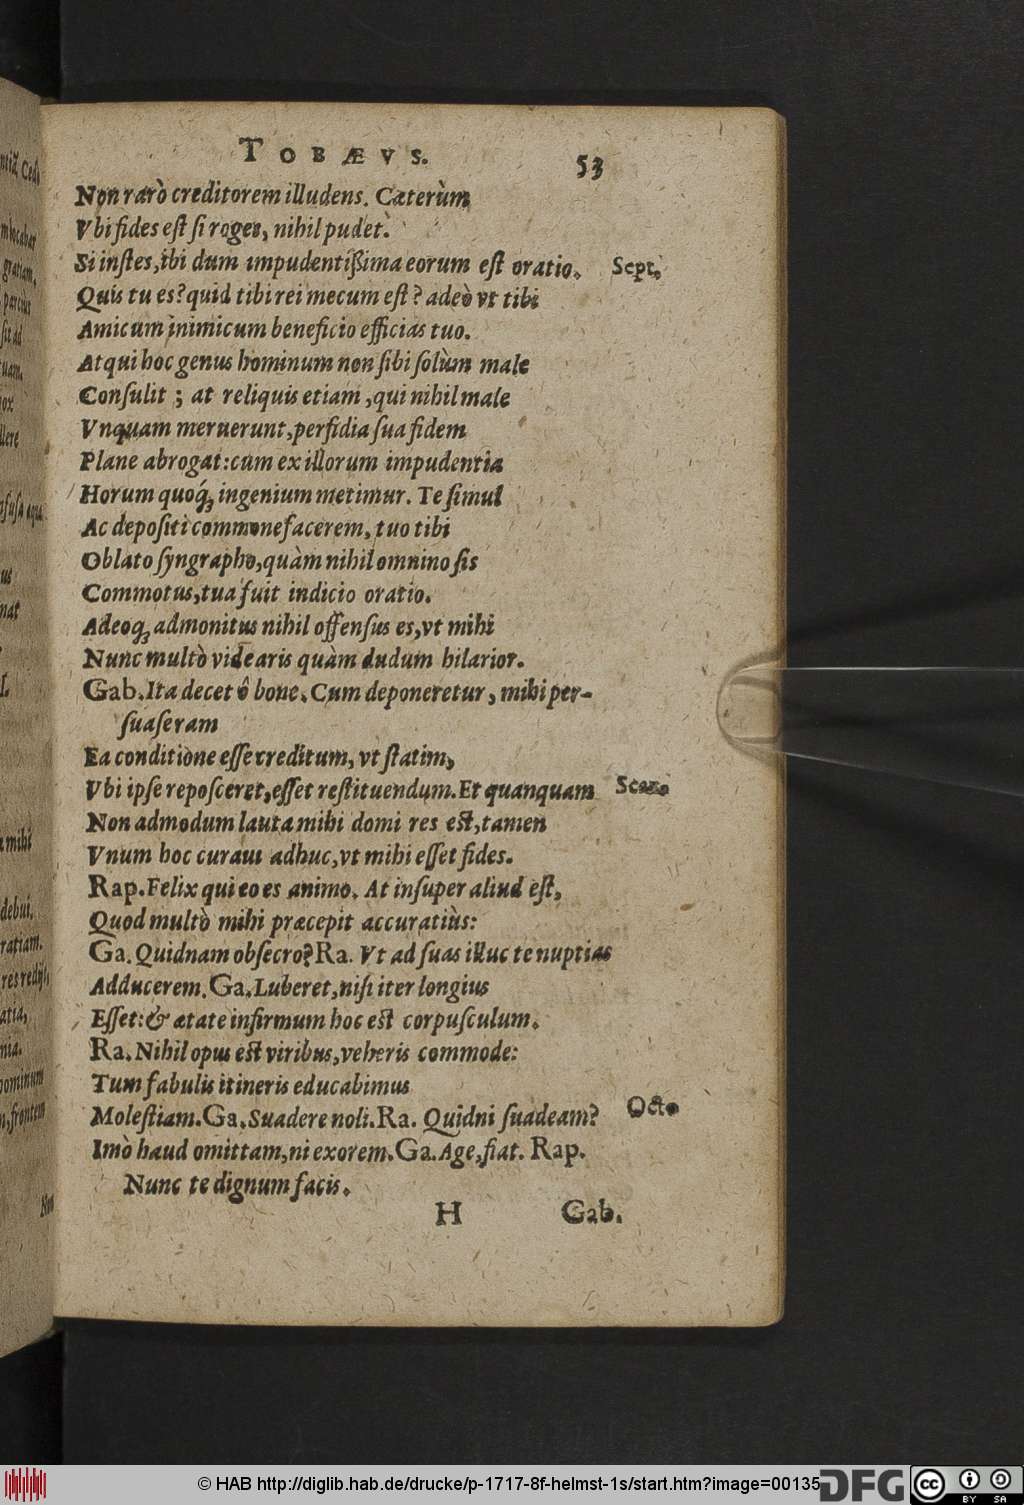 TOBÆVS. 53
Non rarò creditorem illudens. Cæterùm
Vbi fides est si roges, nihil pudet.
Si instes, ibi dum impudentißima eorum est oratio. Sept.
Quis tu es? quid tibi rei mecum est? adeò vt tibi
Amicum inimicum beneficio efficias tuo.
Atqui hoc genus hominum non sibi solùm male
Consulit ; at reliquis etiam, qui nihil male
Vnquam meruerunt, perfidia sua fidem
Plane abrogat: cum ex illorum impudentia
Horum quoq́; ingenium metimur. Te simul
Ac depositi commonefacerem, tuo tibi
Oblato syngrapho, quàm nihil omnino sis
Commotus, tua fuit indicio oratio.
Adeoq; admonitus nihil offensus es, vt mihi
Nunc multò videaris quàm dudum hilarior.
Gab. Ita decet ô bone. Cum deponeretur, mihi per-
suaseram
Ea conditione esse creditum, vt statim,
Vbi ipse reposceret, esset restituendum. Et quanquam Scaz.
Non admodum lauta mihi domi res est, tamen
Vnum hoc curaui adhuc, vt mihi esset fides.
Rap. Felix qui eo es animo. At insuper aliud est,
Quod multò mihi præcepit accuratiùs:
Ga. Quidnam obsecro? Ra. Vt ad suas illuc te nuptias
Adducerem. Ga. Luberet, nisi iter longius
Esset: & ætate infirmum hoc est corpusculum.
Ra. Nihil opus est viribus, veheris commode:
Tum fabulis itineris educabimus
Molestiam. Ga. Suadere noli. Ra. Quidni suadeam? Octo
Imò haud omittam, ni exorem. Ga. Age, fiat. Rap.
Nunc te dignum facis.
H Gab.
© HAB http://diglib.hab.de/drucke/p-1717-8f-helmst-1s/start.htm?image=00135
DFG
cc BY SA